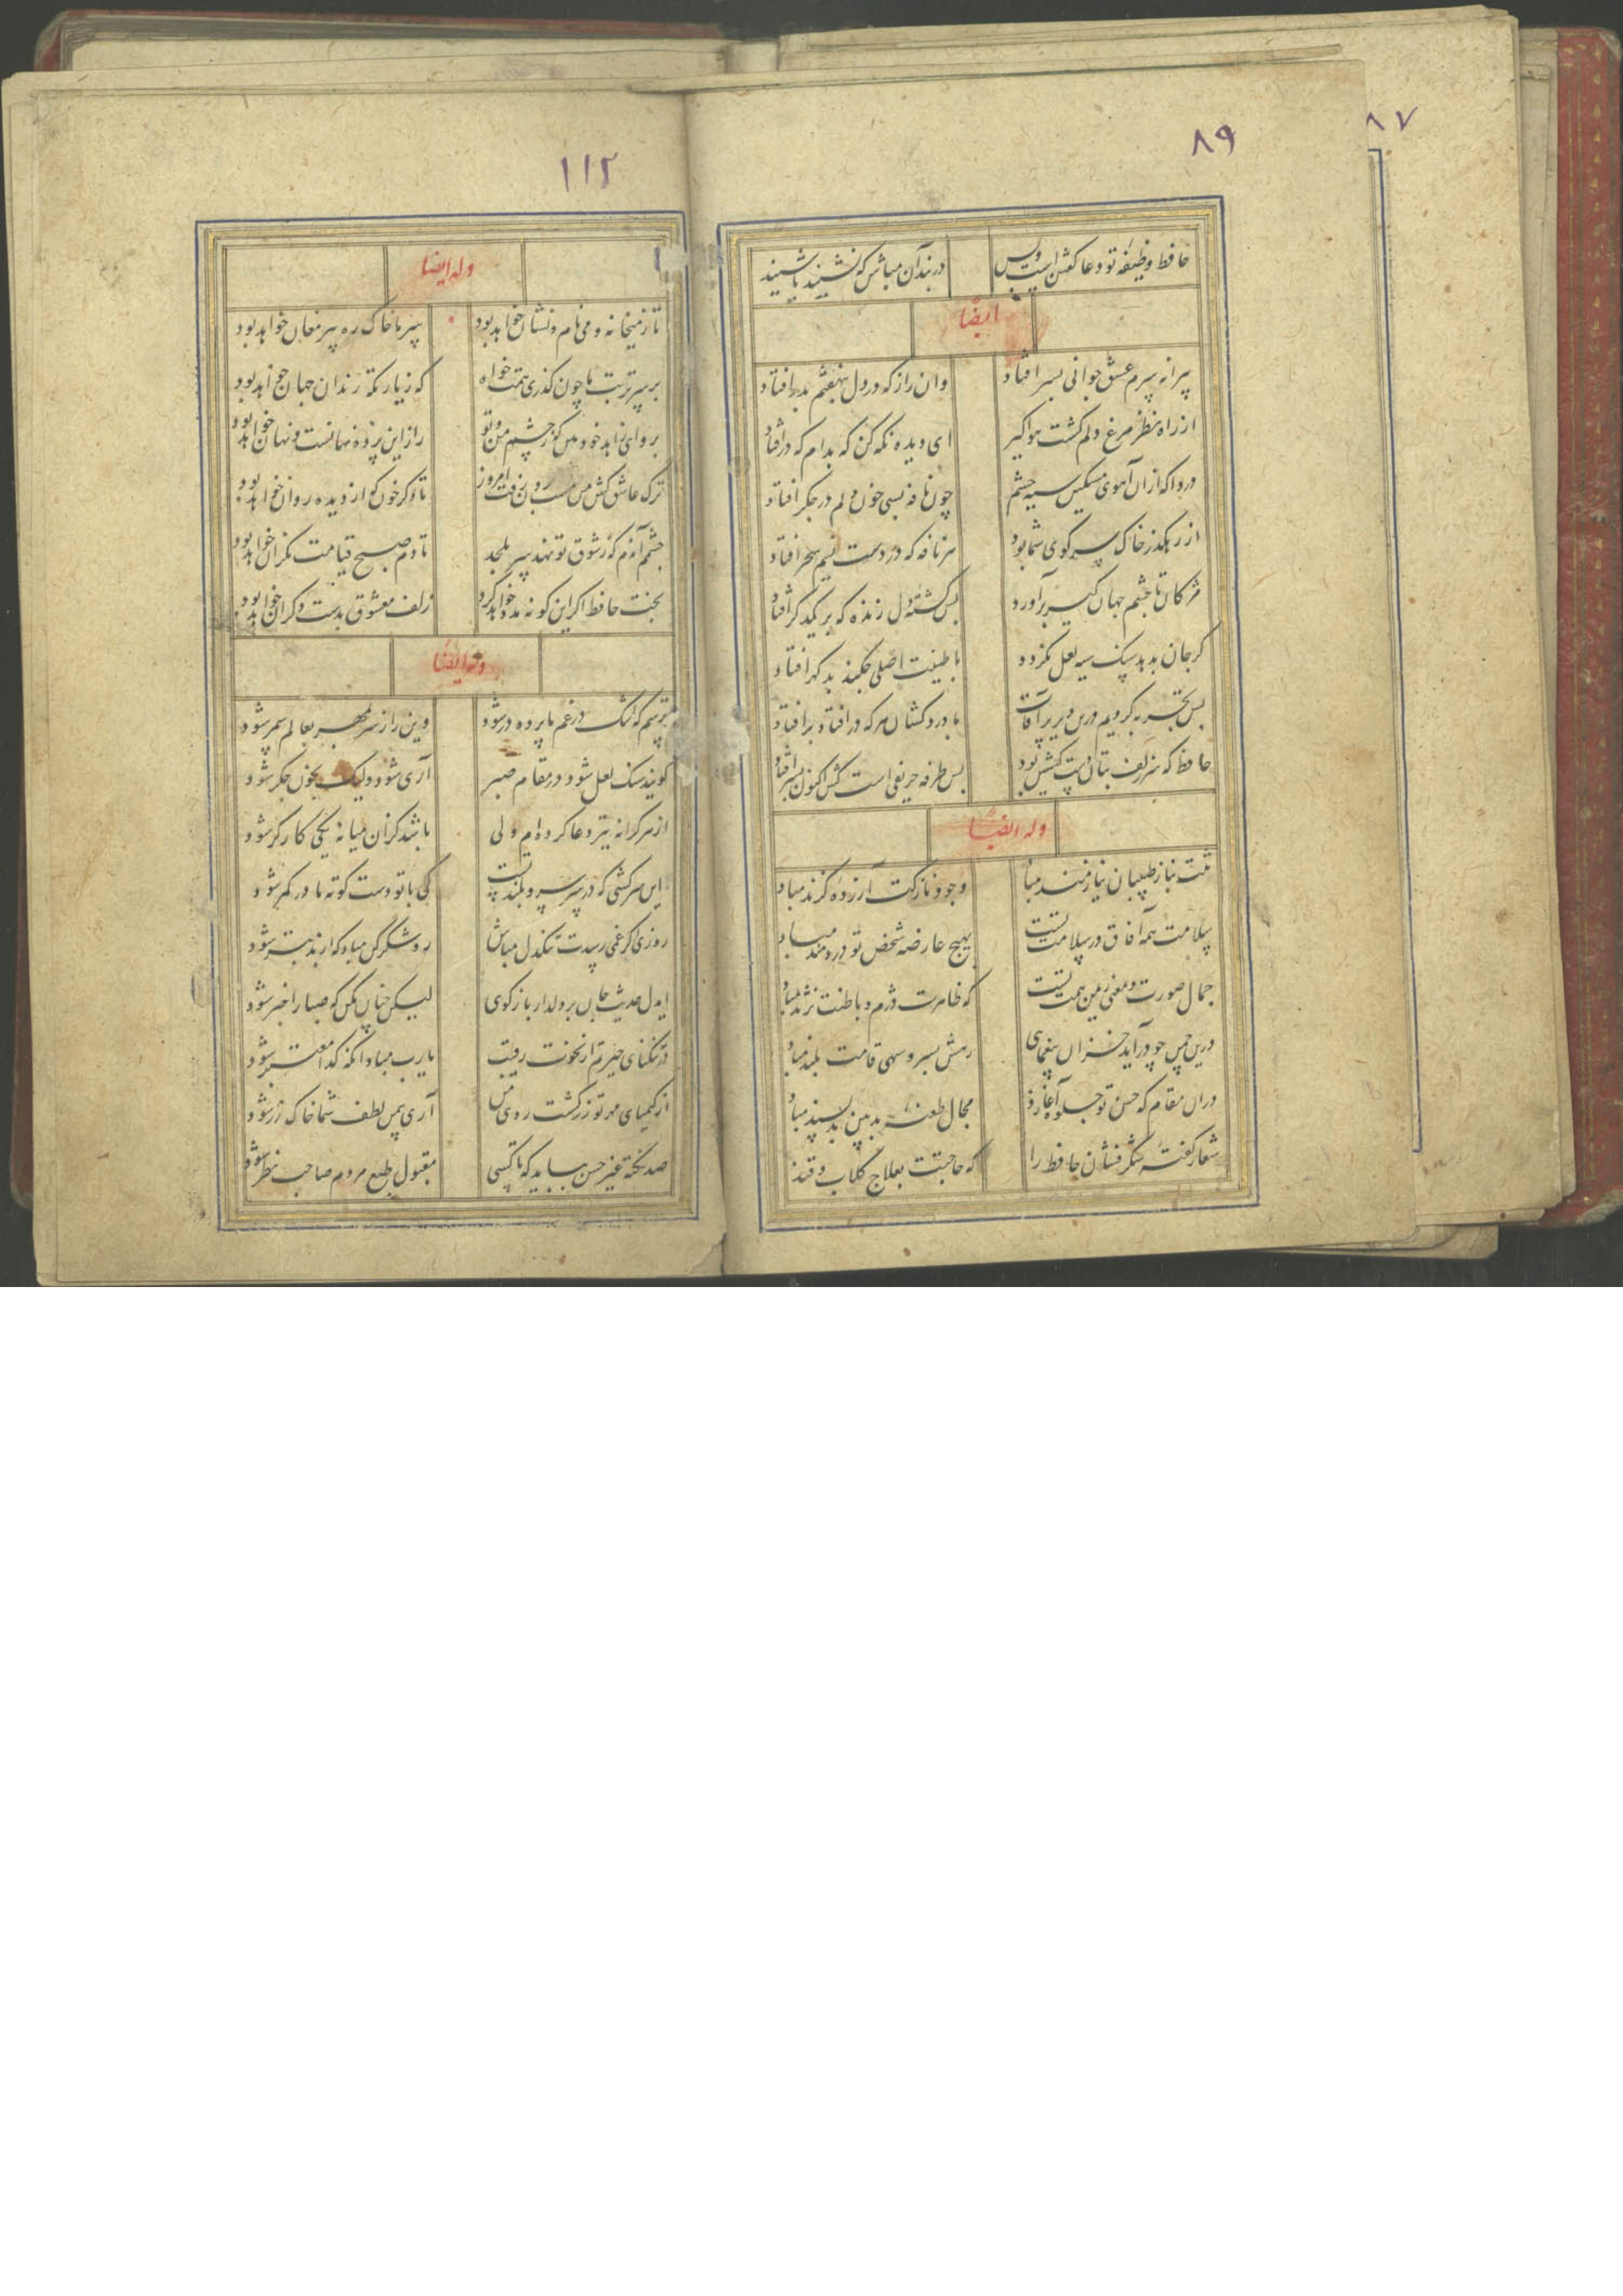 ۸۷
۸۹
حافظ وظیفه تو دعا گفتن است و بس در بند آن مباش که نشنید یا شنید
ایضا
پیرانه سرم عشق جوانی بسر افتاد وان راز که در دل بنهفتم بدر افتاد
از راه نظر مرغ دلم گشت هواگیر ای دیده نگه کن که بدام که در افتاد
دردا که از آن آهوی مشکین سیه چشم چون نافه بسی خون دلم در جگر افتاد
از رهگذر خاک سر کوی شما بود هر نافه که در دست نسیم سحر افتاد
مژگان تا چشم جهان گیر برآورد بس کشته دل زنده که بر یکدگر افتاد
گر جان بدهد سنگ سیه لعل نگردد با طینت اصلی چکند بد گهر افتاد
بس تجربه کردیم درین دیر پر آفات با دردکشان هر که در افتاد بر افتاد
حافظ که سر زلف بتان دست کشش بود بس طرفه حریفی است کش اکنون بسر افتاد
وله ایضا
تنت بناز طبیبان نیازمند مباد وجود نازکت آزرده گزند مباد
سلامت همه آفاق در سلامت تست بهیچ عارضه شخص تو دردمند مباد
جمال صورت و معنی زیمن همت تست که ظاهرت دژم و باطنت نژند مباد
درین چمن چو درآید خزان بیغمای رهش بسرو سهی قامت بلند مباد
در آن مقام که حسن تو جلوه آغازد مجال طعنه بدبین بد پسند مباد
شفا ز گفته شکرفشان حافظ را که حاجتت بعلاج گلاب و قند
۱۱۲
وله ایضا
تا ز میخانه و می نام و نشان خواهد بود سر ما خاک ره پیر مغان خواهد بود
بر سر تربت ما چون گذری همت خواه که زیارتگه رندان جهان خواهد بود
برو ای زاهد خودبین که ز چشم من و تو راز این پرده نهانست و نهان خواهد بود
ترک عاشق کش من مست برون رفت امروز تا دگر خون که از دیده روان خواهد بود
چشمم آندم که ز شوق تو نهد سر بلحد تا دم صبح قیامت نگران خواهد بود
بخت حافظ اگر این گونه مدد خواهد کرد زلف معشوق بدست دگران خواهد بود
وله ایضا
ترسم که اشک در غم ما پرده در شود وین راز سر بمهر بعالم سمر شود
گویند سنگ لعل شود در مقام صبر آری شود ولیک بخون جگر شود
از هر کرانه تیر دعا کرده ام ولی باشد کز آن میانه یکی کارگر شود
این سرکشی که در سر سرو بلند تست کی با تو دست کوته ما در کمر شود
روزی اگر غمی رسدت تنگدل مباش رو شکر کن مباد که از بد بتر شود
ایدل حدیث ما بر دلدار بازگوی لیکن چنان مکن که صبا را خبر شود
در تنگنای حیرتم از نخوت رقیب یارب مباد آنکه گدا معتبر شود
از کیمیای مهر تو زر گشت روی من آری بیمن لطف شما خاک زر شود
صد نکته غیر حسن بباید که تا کسی مقبول طبع مردم صاحب نظر شود